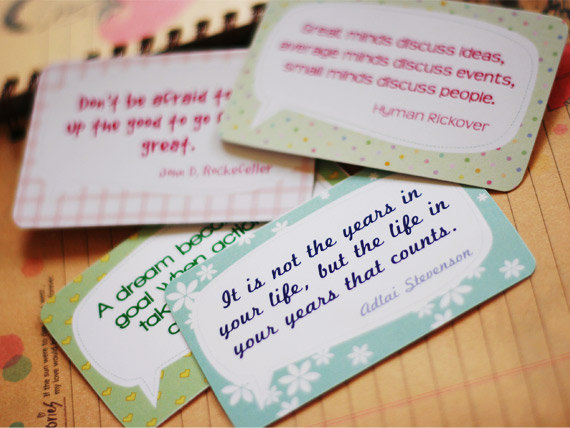 Great minds discuss ideas,
average minds discuss events,
small minds discuss people.
Hyman Rickover
Don't be afraid to
up the good to go
great.
John D. Rockefeller
A dream
goal when action
It is not the years in
your life, but the life in
your years that counts.
Adlai Stevenson
If the sun were to
my love would